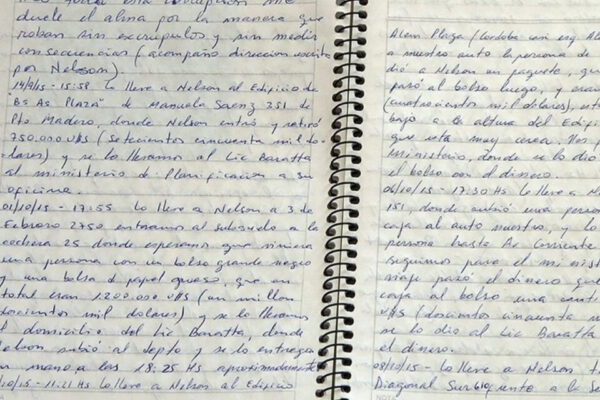 duele el alma por la manera que
roban sin escrupulos y sin medir
consecuencias (acompaño direccion escrita
por Nelson).
14/9/15 - 15:58 Lo lleve a Nelson al Edificio de
Bs As Plaza" de Manuela Saenz 351 de
Pto Madero, donde Nelson entró y retiró
750.000 U$s (setecientos cincuenta mil do-
lares) y se lo llevamos al Lic Baratta
al ministerio de Planificacion a su
oficina.
01/10/15 - 17:55 Lo lleve a Nelson a 3 de
Febrero 2750 entramos al subsuelo a la
cochera 25 donde esperamos que viniera
una persona con un bolso grande negro
y una bolsa d papel grueso, que en
total eran 1.200.000 U$s (un millon
doscientos mil dolares) y se lo llevamos
l domicilio del Lic Baratta, donde
elson subió al depto y se lo entrego
n mano a las 18:25 Hs aproximadamente
/10/15 - 11:11 Hs Lo lleve a Nelson al Edificio
Alem Plaza (Cordoba casi esq Ale
a nuestro auto la persona de
dió a Nelson un paquete, que
pasó al bolso luego, y eran
(cuatrocientos mil dolares), este
bajo a la altura del Edifi
que está muy cerca. Nos f
ministerio, donde se lo dio
el bolso con el dinero.
06/10/15 - 17:30 Hs Lo lleve a N
151, donde subió una person
caja al auto nuestro, y lo
persona hasta Av Corriente
seguimos para el ministe
viaje pasó el dinero que
caja al bolso una canti
U$s (doscientos cincuenta m
se lo dio al Lic Baratta
el dinero.
08/10/15 - Lo lleve a Nelson
Diagonal Sur 610 frente a la Se
NOTA